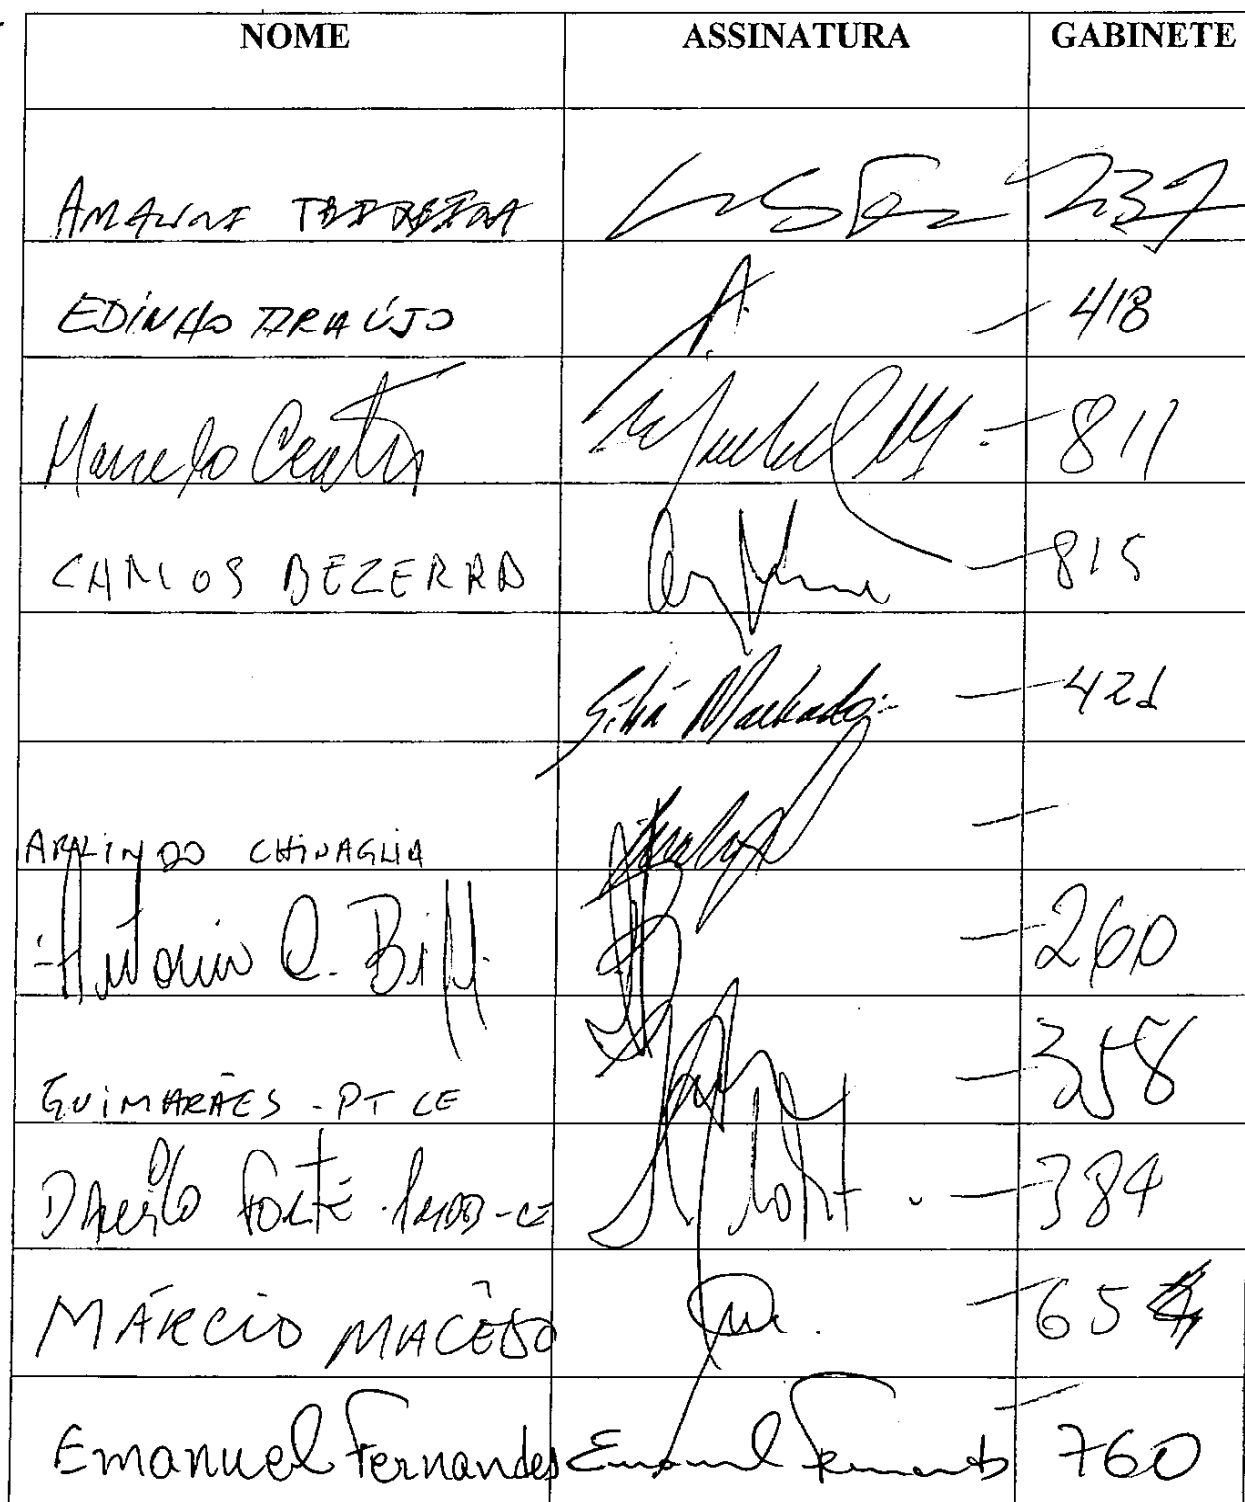 NOME ASSINATURA GABINETE
237
EDINHO ARAÚJO 418
Marcelo Castro 811
CARLOS BEZERRA 815
Machado 421
ARLINDO CHINAGLIA
Antonio C. Biffi 260
GUIMARÃES - PT CE 358
DANILO FORTE - PMDB-CE 384
MÁRCIO MACÊDO 65
Emanuel Fernandes Emanuel Fernandes 760